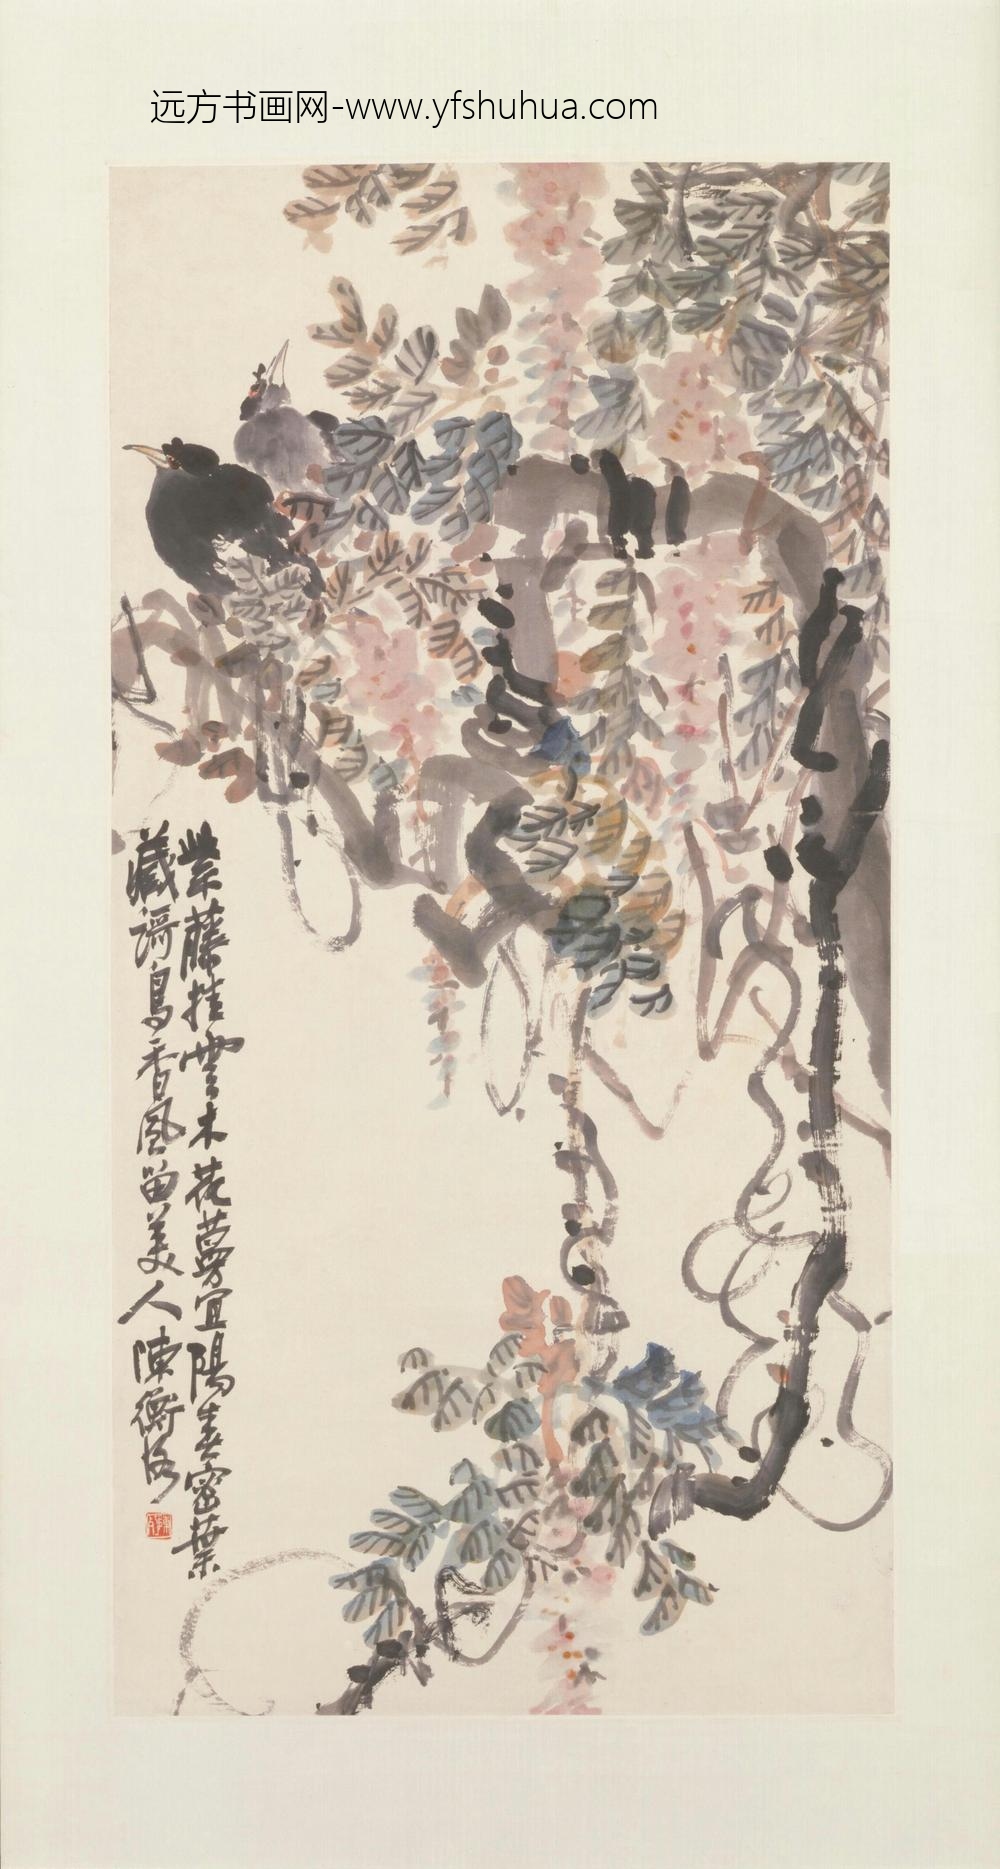 远方书画网-www.yfshuhua.com
紫藤挂雲木花蔓宜陽春密葉
藏謌鳥香風留美人陳衡恪